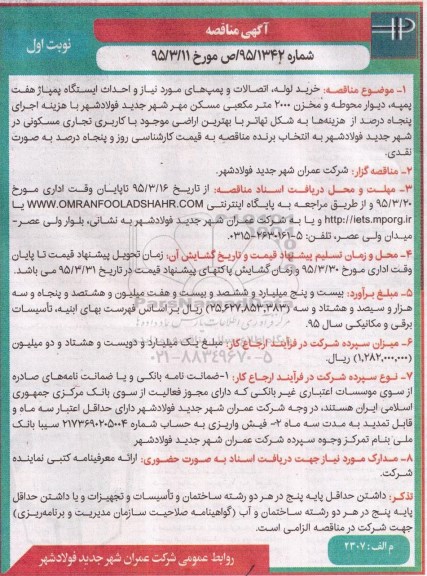 آگهی مناقصه
نوبت اول
شماره ۹۵/۱۳۴۲/ص مورخ ۹۵/۳/۱۱
۱- موضوع مناقصه: خرید لوله، اتصالات و پمپ‌های مورد نیاز و احداث ایستگاه پمپاژ هفت
پمپه، دیوار محوطه و مخزن ۲۰۰۰ متر مکعبی مسکن مهر شهر جدید فولادشهر با هزینه اجرای
پنجاه درصد از هزینه‌ها به شکل تهاتر با بهترین اراضی موجود با کاربری تجاری مسکونی در
شهر جدید فولادشهر به انتخاب برنده مناقصه به قیمت کارشناسی روز و پنجاه درصد به صورت
نقدی.
۲- مناقصه گزار: شرکت عمران شهر جدید فولادشهر.
۳- مهلت و محل دریافت اسناد مناقصه: از تاریخ ۹۵/۳/۱۶ تاپایان وقت اداری مورخ
۹۵/۳/۲۰ و از طریق مراجعه به پایگاه اینترنتی WWW.OMRANFOOLADSHAHR.COM یا
http://iets.mporg.ir و یا به شرکت عمران شهر جدید فولادشهر به نشانی، بلوار ولی عصر-
میدان ولی عصر، تلفن: ۵-۰۳۱۵۰۲۶۳۰۱۶۱
۴- محل و زمان تسلیم پیشنهاد قیمت و تاریخ گشایش آن: زمان تحویل پیشنهاد قیمت تا پایان
وقت اداری مورخ ۹۵/۳/۳۰ و زمان گشایش پاکتهای پیشنهاد قیمت در تاریخ ۹۵/۳/۳۱ می باشد.
۵- مبلغ برآورد: بیست و پنج میلیارد و ششصد و بیست و هفت میلیون و هشتصد و پنجاه و سه
هزار و سیصد و هشتاد و سه (۲۵,۶۲۷,۸۵۳,۳۸۳) ریال بر اساس فهرست بهای ابنیه، تأسیسات
برقی و مکانیکی سال ۹۵.
۶- میزان سپرده شرکت در فرآیند ارجاع کار: مبلغ یک میلیارد و دویست و هشتاد و دو میلیون
(۱,۲۸۲,۰۰۰,۰۰۰) ریال.
۷- نوع سپرده شرکت در فرآیند ارجاع کار: ۱-ضمانت نامه بانکی و یا ضمانت نامه‌های صادره
از سوی موسسات اعتباری غیر بانکی که دارای مجوز فعالیت از سوی بانک مرکزی جمهوری
اسلامی ایران هستند، در وجه شرکت عمران شهر جدید فولادشهر دارای حداقل اعتبار سه ماه و
قابل تمدید به مدت سه ماه ۲- فیش واریزی به حساب شماره ۲۱۷۳۶۹۰۲۰۵۰۰۴ سیبا بانک
ملی بنام تمرکز وجوه سپرده شرکت عمران شهر جدید فولادشهر
۸- مدارک مورد نیاز جهت دریافت اسناد به صورت حضوری: ارائه معرفینامه کتبی نماینده
شرکت.
تذکر: داشتن حداقل پایه پنج در هر دو رشته ساختمان و تأسیسات و تجهیزات و یا داشتن حداقل
پایه پنج در هر دو رشته ساختمان و آب (گواهینامه صلاحیت سازمان مدیریت و برنامه‌ریزی)
جهت شرکت در مناقصه الزامی است.
م الف: ۲۳۰۷
روابط عمومی شرکت عمران شهر جدید فولادشهر
۰۲۱-۸۸۳۴۹۶۷۰-۵